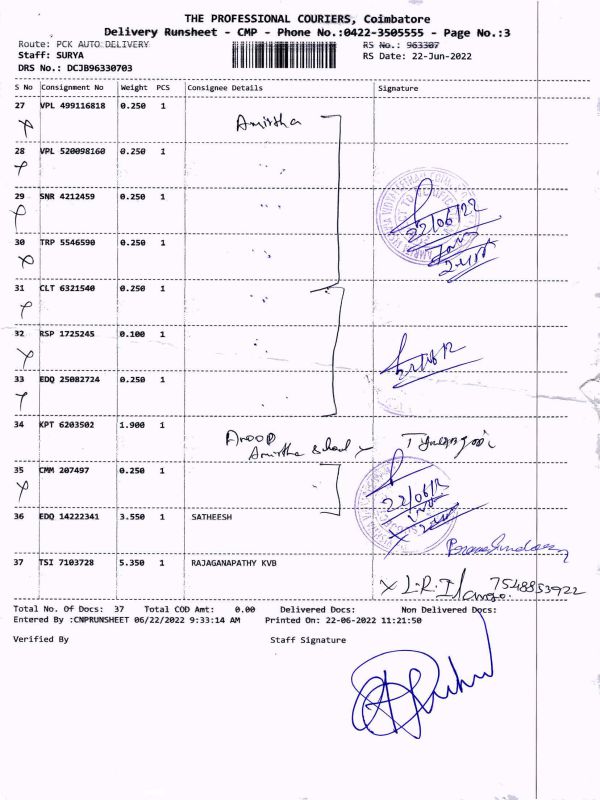 THE PROFESSIONAL COURIERS, Coimbatore
Delivery Runsheet - CMP - Phone No.:0422-3505555 - Page No.:3
Route: PCK AUTO DELIVERY RS No.: 963307
Staff: SURYA RS Date: 22-Jun-2022
DRS No.: DCJB96330703
S No Consignment No Weight PCS Consignee Details Signature
27 VPL 499116818 0.250 1
Amirtha
28 VPL 520098160 0.250 1
29 SNR 4212459 0.250 1
22/06/22
30 TRP 5546590 0.250 1
31 CLT 6321540 0.250 1
32 RSP 1725245 0.100 1
33 EDQ 25082724 0.250 1
34 KPT 6203502 1.900 1
Anoop
Amirtha School
35 CMM 207497 0.250 1
36 EDQ 14222341 3.550 1 SATHEESH
37 TSI 7103728 5.350 1 RAJAGANAPATHY KVB
7548853922
Total No. Of Docs: 37 Total COD Amt: 0.00 Delivered Docs: Non Delivered Docs:
Entered By :CNPRUNSHEET 06/22/2022 9:33:14 AM Printed On: 22-06-2022 11:21:50
Verified By Staff Signature